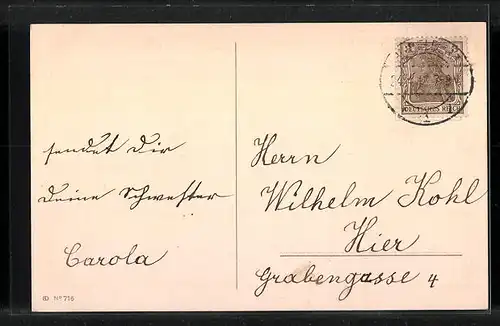 sendet Dir
Deine Schwester
Carola
Herrn
Wilhelm Kohl
Hier
Grabengasse 4
DEUTSCHES REICH
ID No 716